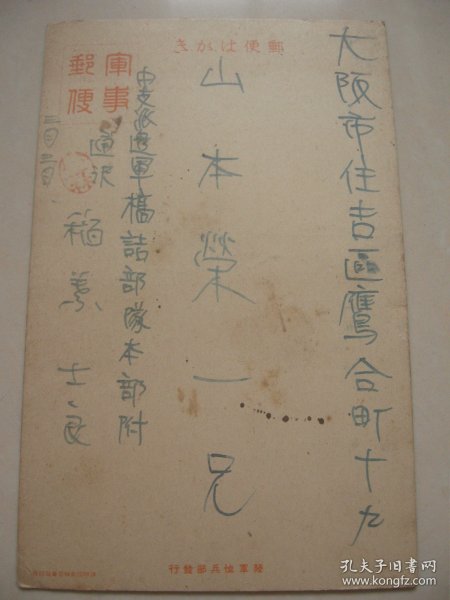 郵便はがき
軍事
郵便
大阪市住吉區鷹合町十九
山本榮一兄
中支派遣軍橋詰部隊本部附
通訳
稲義士良
二月二日
陸軍恤兵部發行
孔夫子旧书网
book.kongfz.com